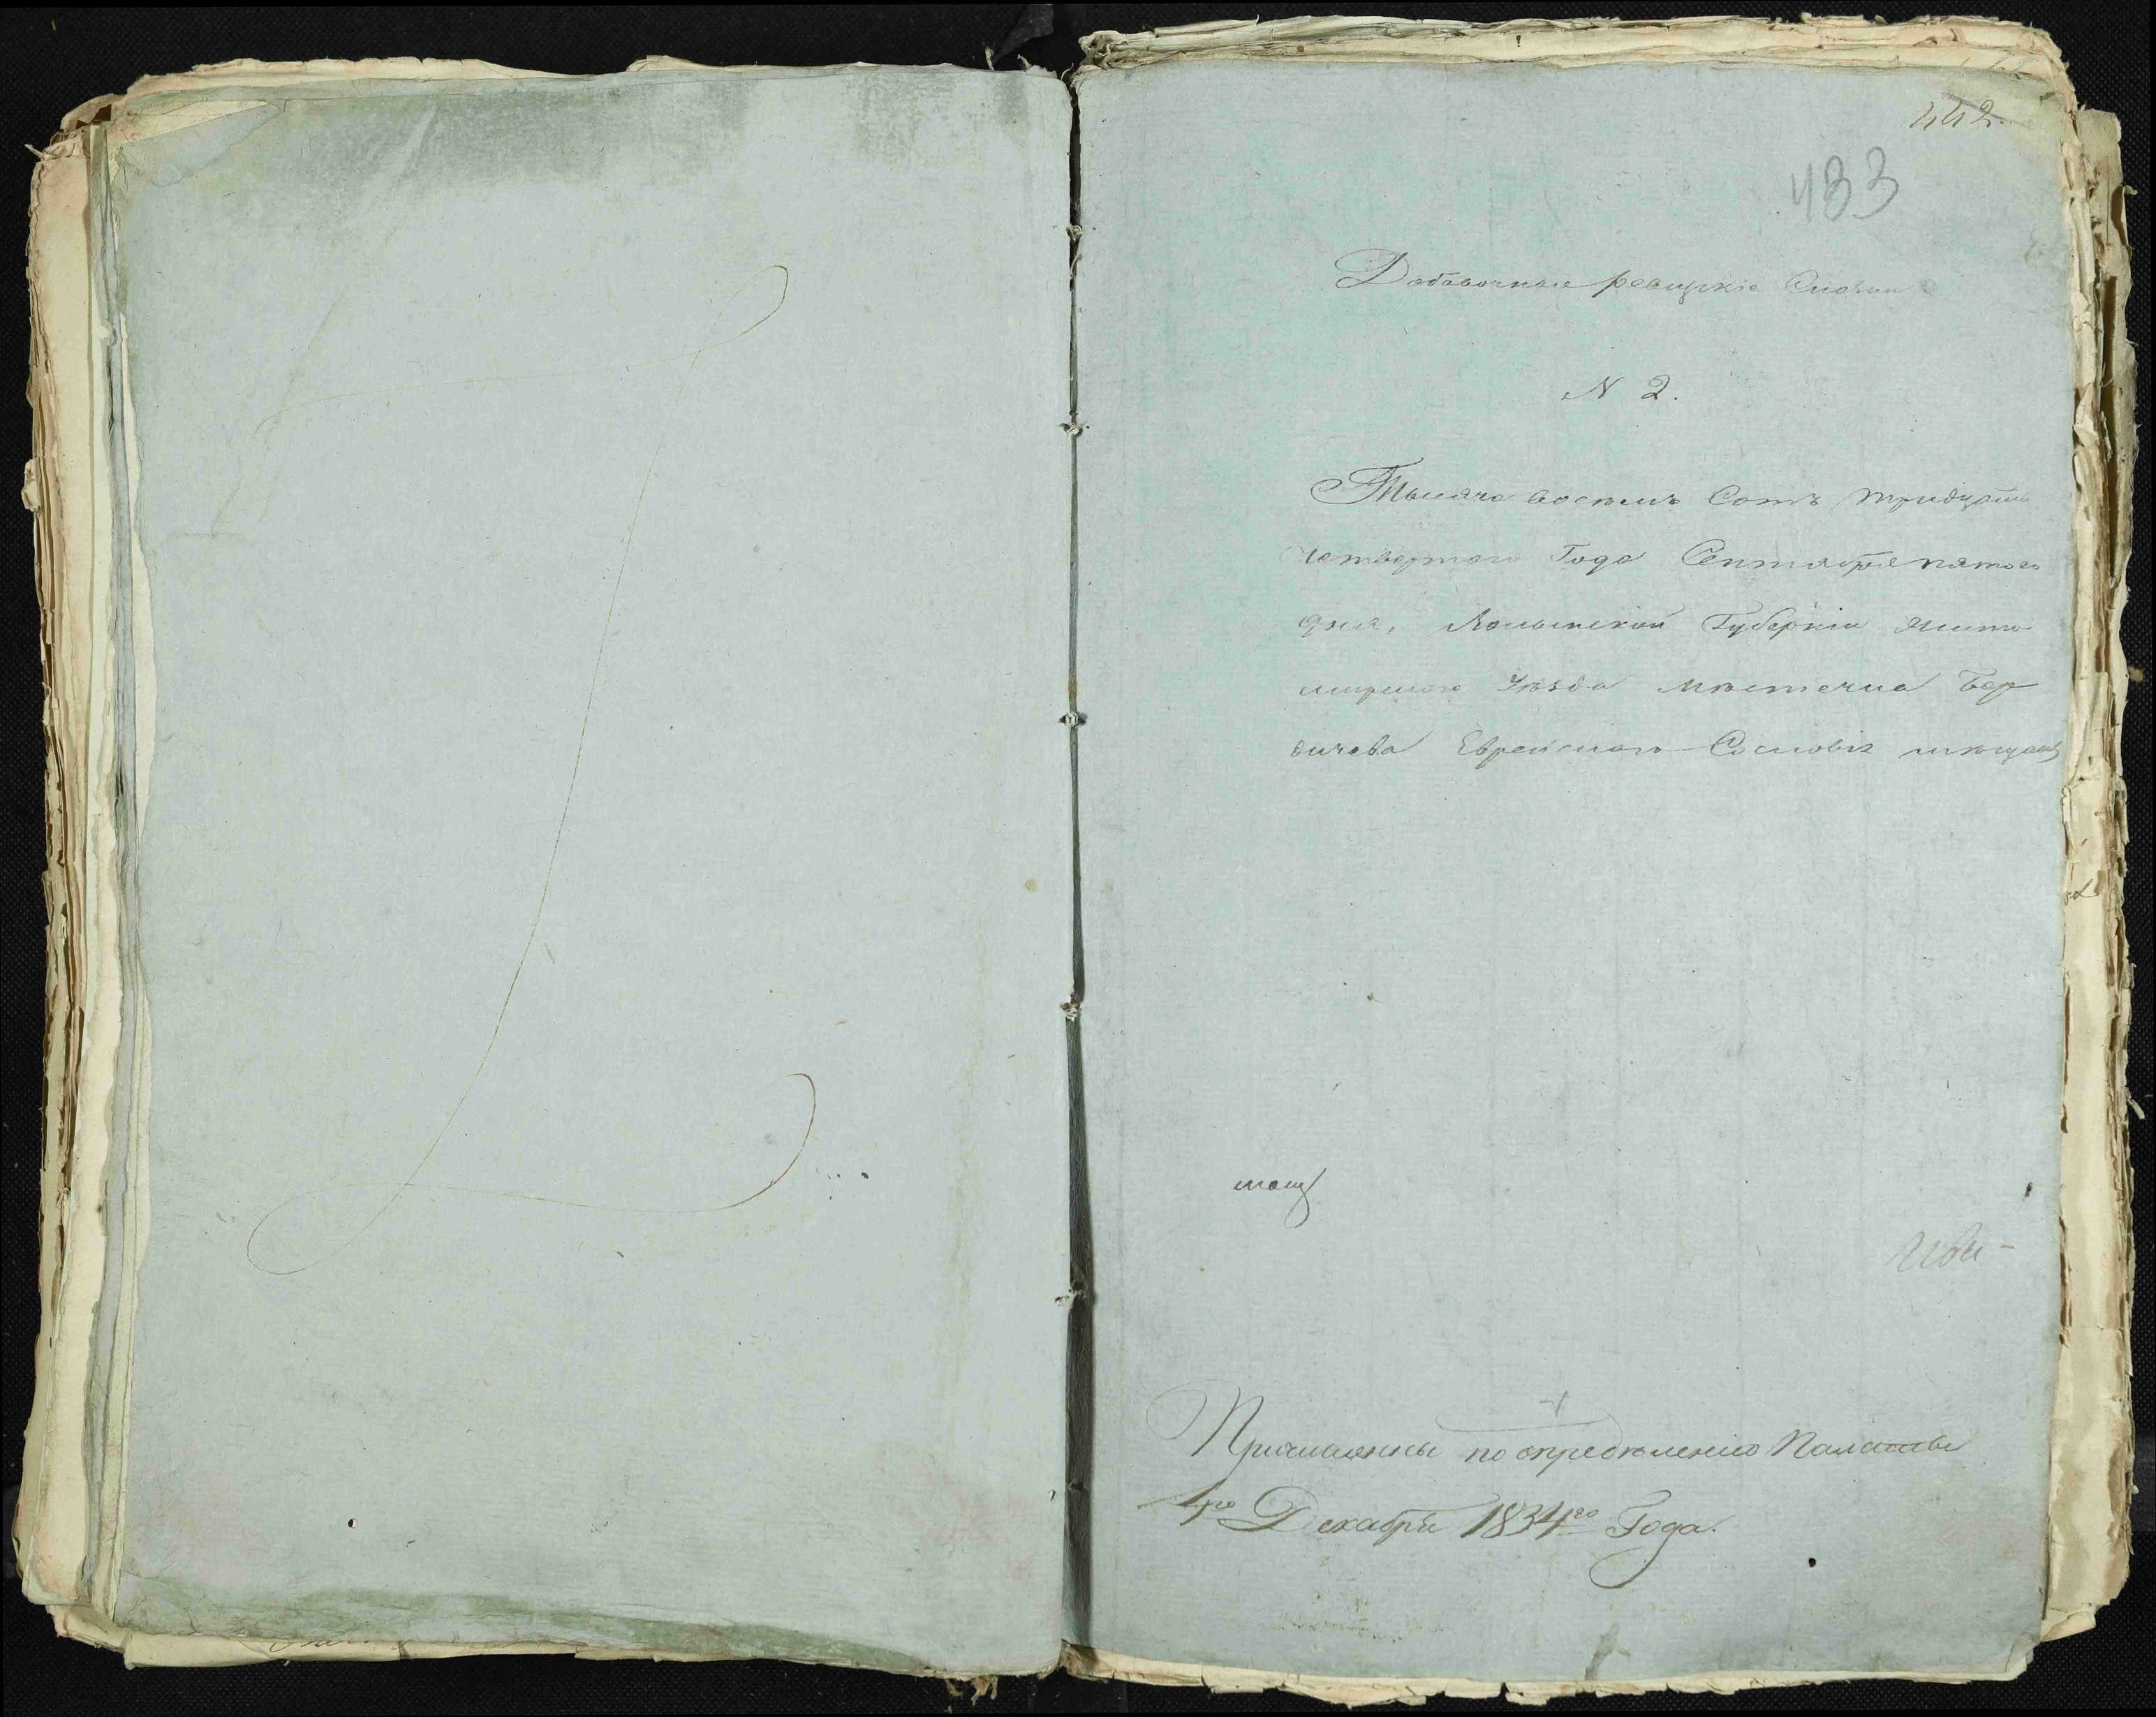 442.
433
Добавочные ревизскіе Сказки
N 2.
Тысяча восемь Сотъ тридцать
четвертаго Года Сентября пятого
дня, Волынской Губерніи Жито
мирскаго Уѣзда мѣстечка Бер
дичева Еврейскаго Сословія мѣщанъ
Причисленны по опредѣленію Палаты
4го Декабря 1834го Года.